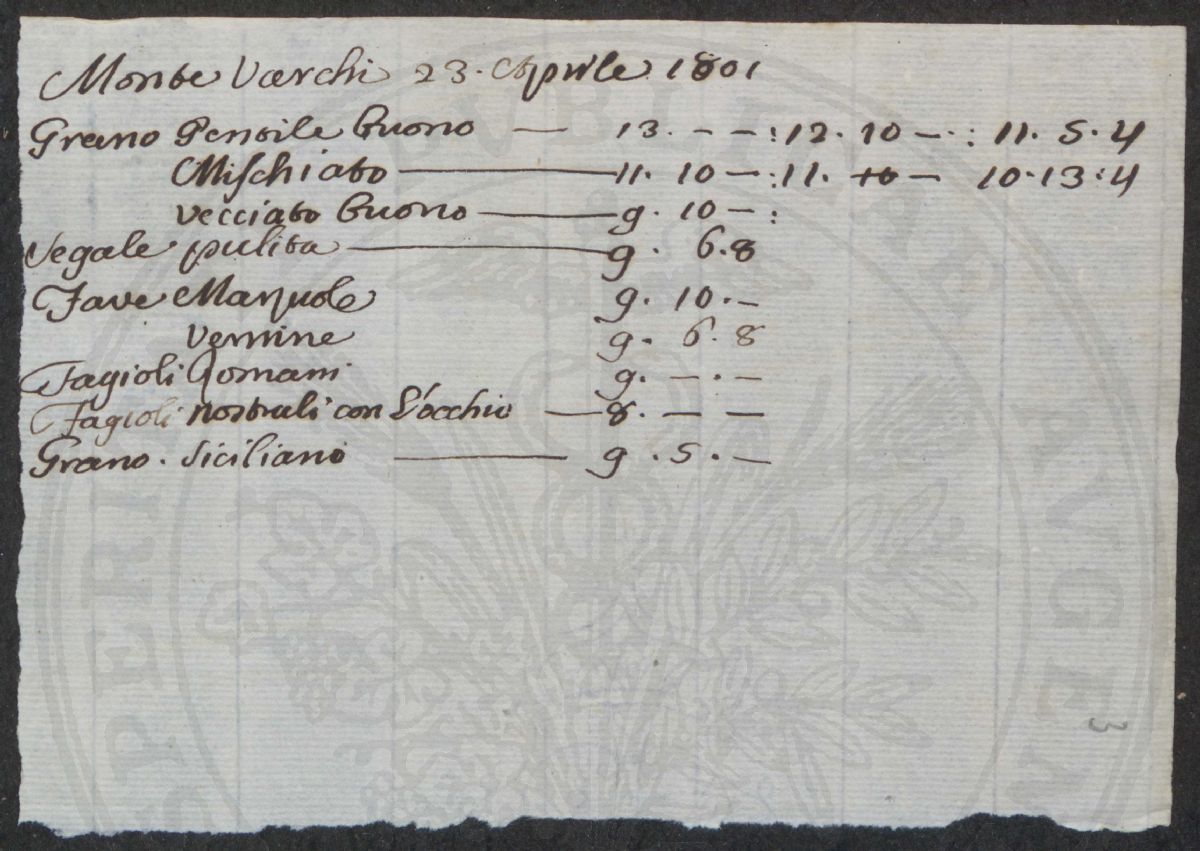 Monte Varchi 23. Aprile 1801
Grano Gentile buono — 13. — — : 12. 10 — : 11. 5. 4
Mischiato — 11. 10 — : 11. — 10. 13 : 4
vecciato buono — 9. 10 — :
Segale pulita — 9. 6. 8
Fave Marzuole 9. 10. —
Vernine 9. 6. 8
Fagioli Romani 9. — . —
Fagioli nostrali con L'occhio — 8. — —
Grano. Siciliano — 9. 5. —
3